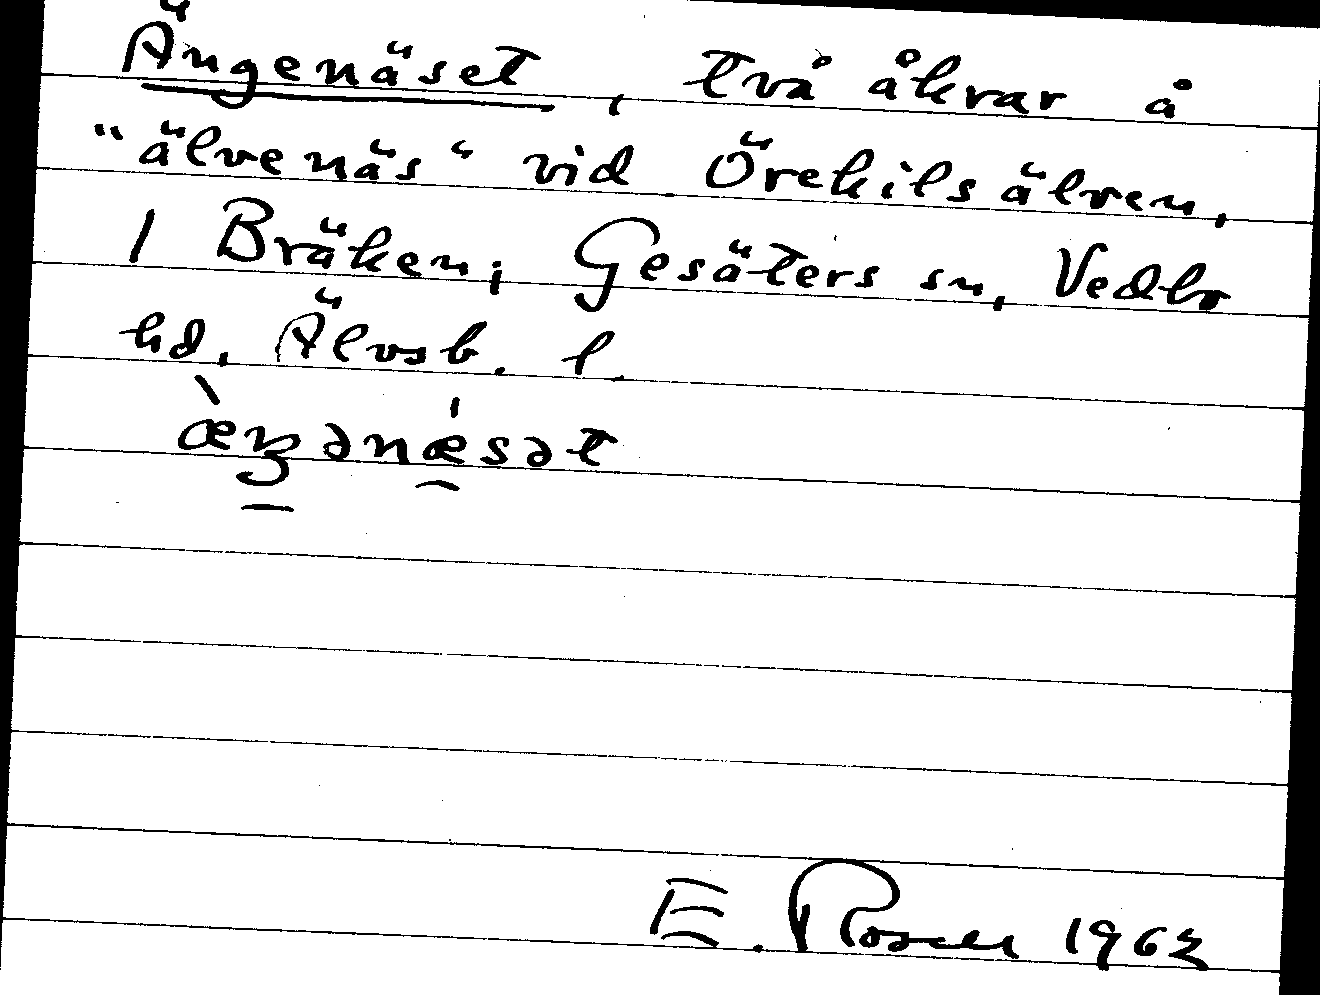 Ängenäset, två åkrar å
"älvenäs" vid Örekilsälven,
1 Bräken, Gesäters sn, Vedbo
hd, Älvsb. l.
æ̀ŋənǽsət
E. Rosell 1962